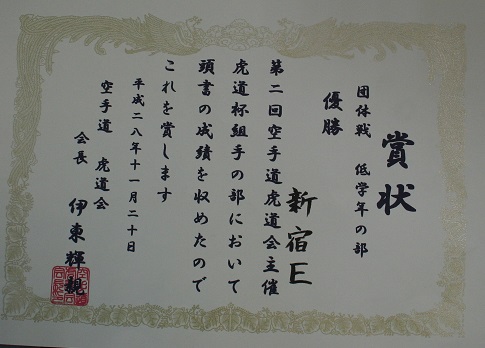 賞状
団体戦 低学年の部
優勝
新宿E
第二回空手道虎道会主催
虎道杯組手の部において
頭書の成績を収めたので
これを賞します
平成二八年十一月二十日
空手道 虎道会
会長 伊東輝親